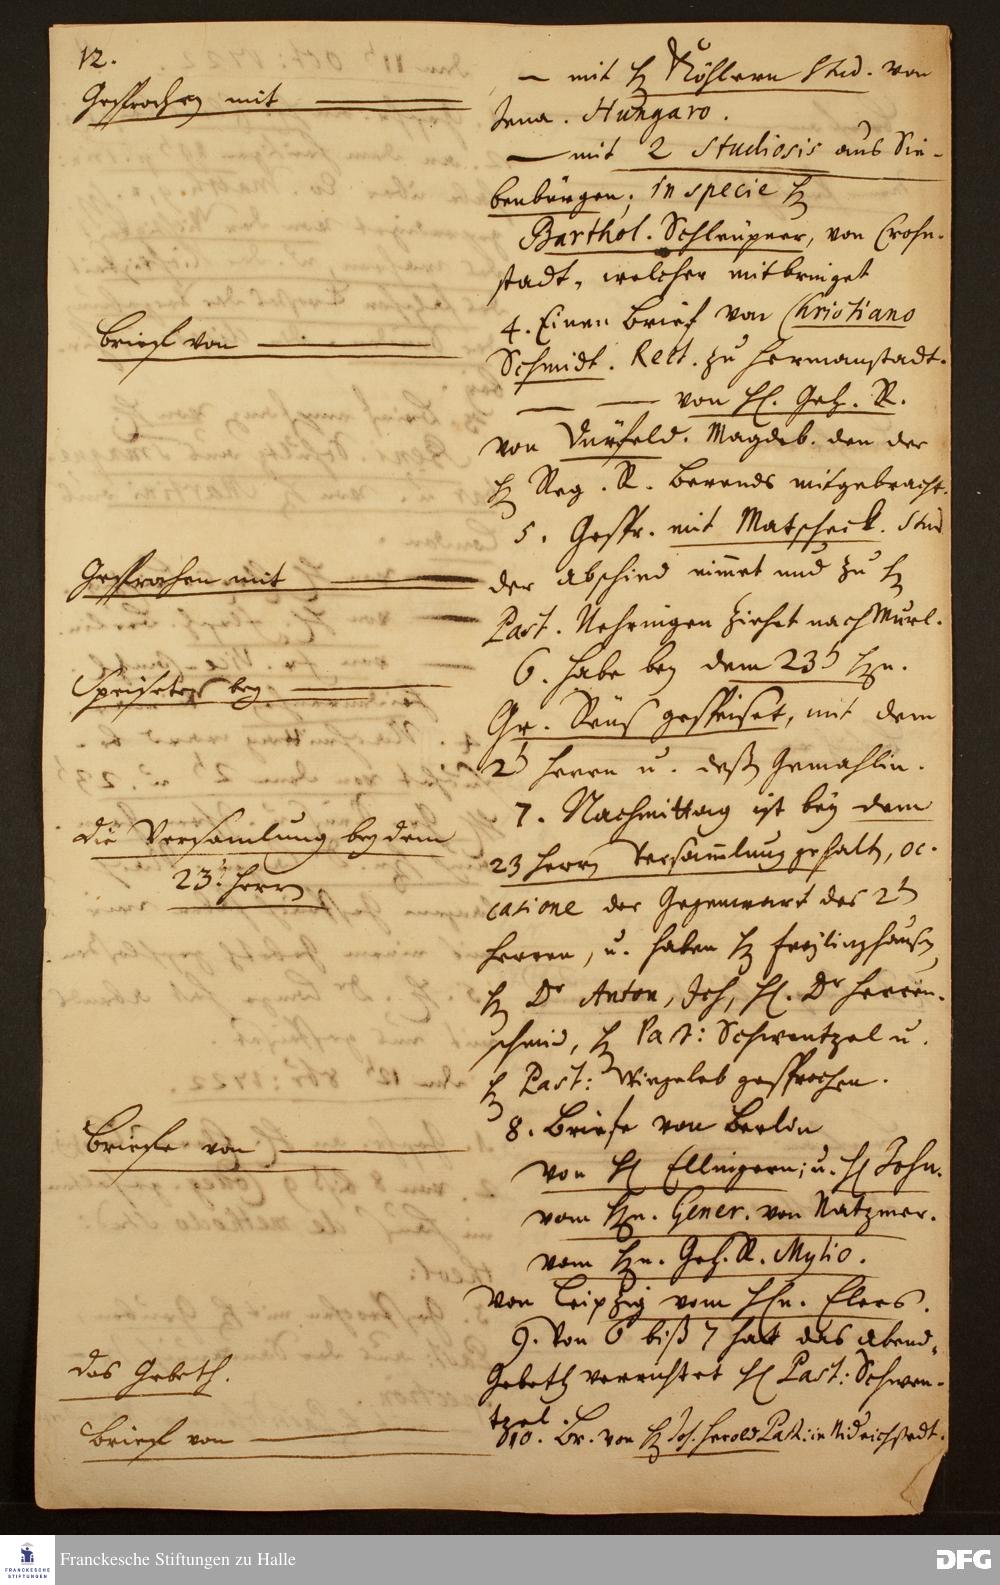 12.
Gesprochen mit
— mit H. Köhlern Stud. von
Jena. Hungaro.
— mit 2 Studiosis aus Sie-
benbürgen, in specie H.
Barthol. Schleupner, von Crohn-
stadt, welcher mitbringet
Briefe von
4. Einen Brief von Christiano
Schmidt. Rect. zu Hermanstadt.
— — von H. Geh. R.
von Durfeld. Magdeb. den der
H. Reg. R. Berends mitgebracht.
Gesprochen mit
5. Gespr. mit Matscheck. Stud.
der abschied nimmt und zu H.
Past. Nehringen ziehet nach Murl.
Speiseten bey
6. habe bey dem 23t Hn.
Gr. Reuß gespeiset, mit dem
2t Herrn u. deß Gemahlin.
Die Versamlung bey dem
23t Herrn
7. Nachmittag ist bey dem
23 Herrn Versamlung gehalten, oc-
casione der Gegenwart des 2t
Herren, u. haben H. Freylinghausen,
H. Dr Anton, Ich, H. Dr Herren-
schmid, H. Past: Schwentzel u.
H. Past: Wiegleb gesprochen.
Briefe von
8. Briefe von Berlin
von H. Ellingern; u. H. John.
vom Hn. Gener. von Natzmer.
vom Hn. Geh. R. Mylio.
von Leipzig vom Hn. Elers.
9. Von 6 biß 7 hat das Abend-
das Gebeth.
Gebeth verrichtet H. Past: Schwen-
tzel.
Briefe von
10. Br. von H. Joh. Herold Past: in
Franckesche Stiftungen zu Halle
FRANCKESCHE
STIFTUNGEN
DFG